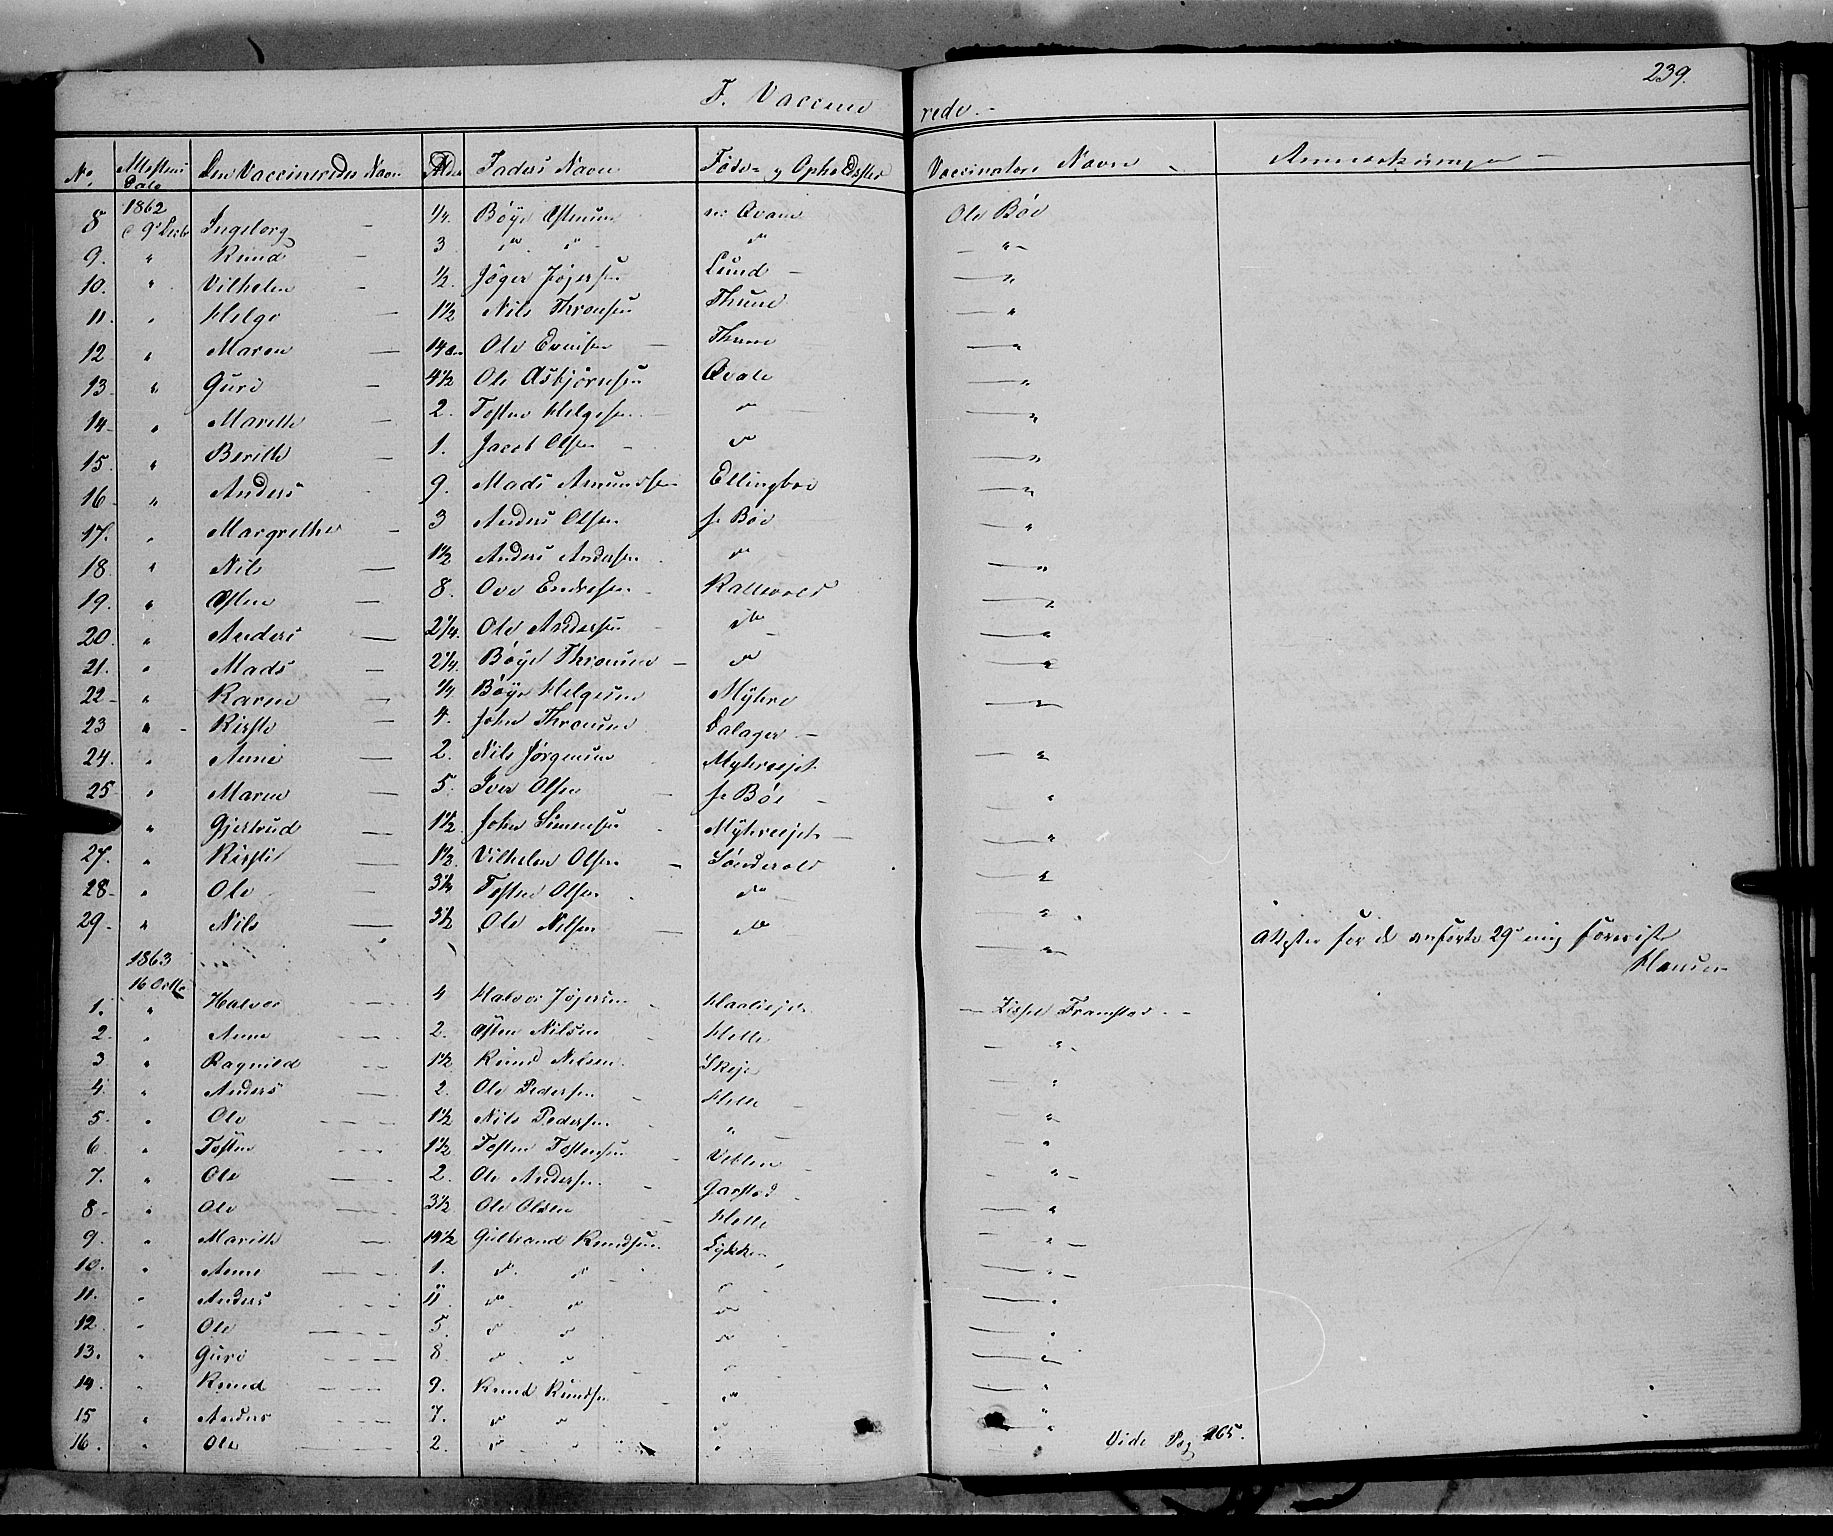 239.
F. Vaccine rede.
No. Attestens Dato Den Vaccineredes Navn Alder Faders Navn Føde- og Opholdssted Vaccinators Navn Anmærkninger
1862
8 9 Ingeborg 1/4. Bøye Ostensen Qvam Ole Bøe
9. " Knud 3 " " do "
10. " Vilhelm 1/2. Jøger Jøgersen Lund "
11. " Helge 1 1/2 Nils Thronsen Thune "
12 " Maren 14 Ole Evensen Thune "
13 " Guri 4 1/2 Ole Asbjørnsen Qvale "
14 " Marithe 2. Tosten Helgesen do "
15. " Berithe 1. Jacob Olsen do "
16 " Anders 9. Mads Amundsen Ellingboe "
17. " Margrethe 3 Anders Olsen Bøe "
18 " Nils 1 1/2 Anders Andersen do "
19. " Østen 8. Ove Endresen Kaltevold "
20. " Anders 2 1/4. Ole Andersen do "
21. " Mads 2 1/4. Bøye Thronsen do "
22 " Karen 1/4 Bøye Helgesen Myhre "
23 " Kirsti 4. John Thronsen Dalager
24. " Anne 2. Nils Jørgensen Myhreejet. "
25 " Maren 5. Iver Olsen Bøe "
" Gjertrud 1 1/2 John Simensen Myhreejet "
27. " Kirsti 1 1/2. Vilhelm Olsen Sønderold "
28 " Ole 3 1/2 Tosten Olsen do "
29. " Nils 3 1/2 Ole Nilsen do " Attester for de anførte 29 mig foreviste
Hansen
1863
16 Octbr
1. " Halvor 4 Halvor Jøgersen Haaliejet Sissel Framstad
2. " Anne 2. Østen Nilsen Helle "
3 " Ragnild 1 1/2 Knud Nilsen. Skeje "
4. " Anders 2. Ole Pedersen Helle "
5. " Ole 1 1/2 Nils Pedersen " "
6. " Tosten 1 1/2 Tosten Tostensen Veblen "
7. " Ole 2. Ole Andersen Garstad "
8. " Ole 3 1/2 Ole Olsen Helle "
9. " Marithe 14 1/2 Gulbrand Knudsen Lykken "
10. " Anne 1. do do " "
11. " Anders 11 do do do "
12. " Ole 5. do do do "
13. " Guri 8 do do do "
14 " Knud 9. Knud Knudsen do "
15 " Anders 7. do do " "
16. " Ole 2. do do " "
Vide Pag 265.